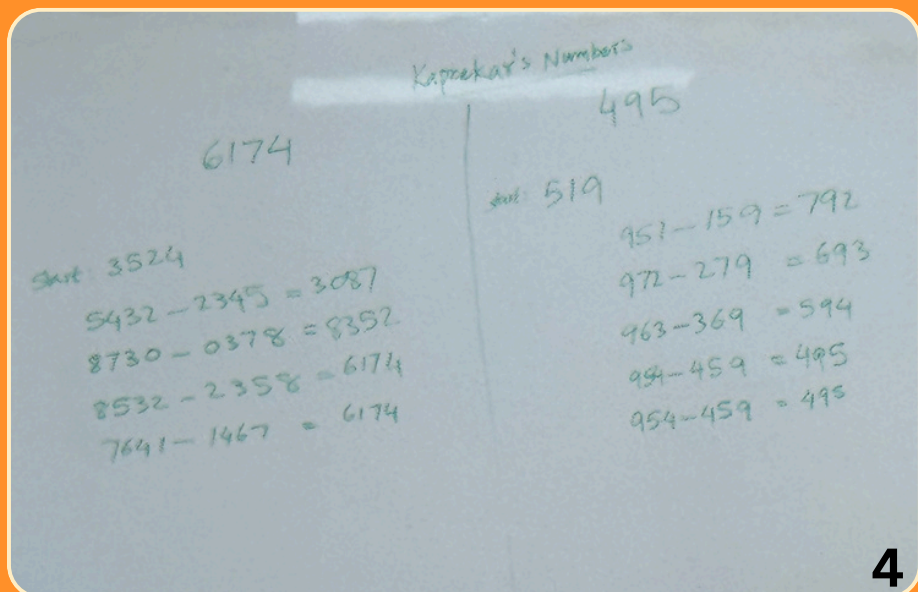 Kaprekar's Numbers
6174
start: 3524
5432 - 2345 = 3087
8730 - 0378 = 8352
8532 - 2358 = 6174
7641 - 1467 = 6174
495
start: 519
951 - 159 = 792
972 - 279 = 693
963 - 369 = 594
954 - 459 = 495
954 - 459 = 495
4